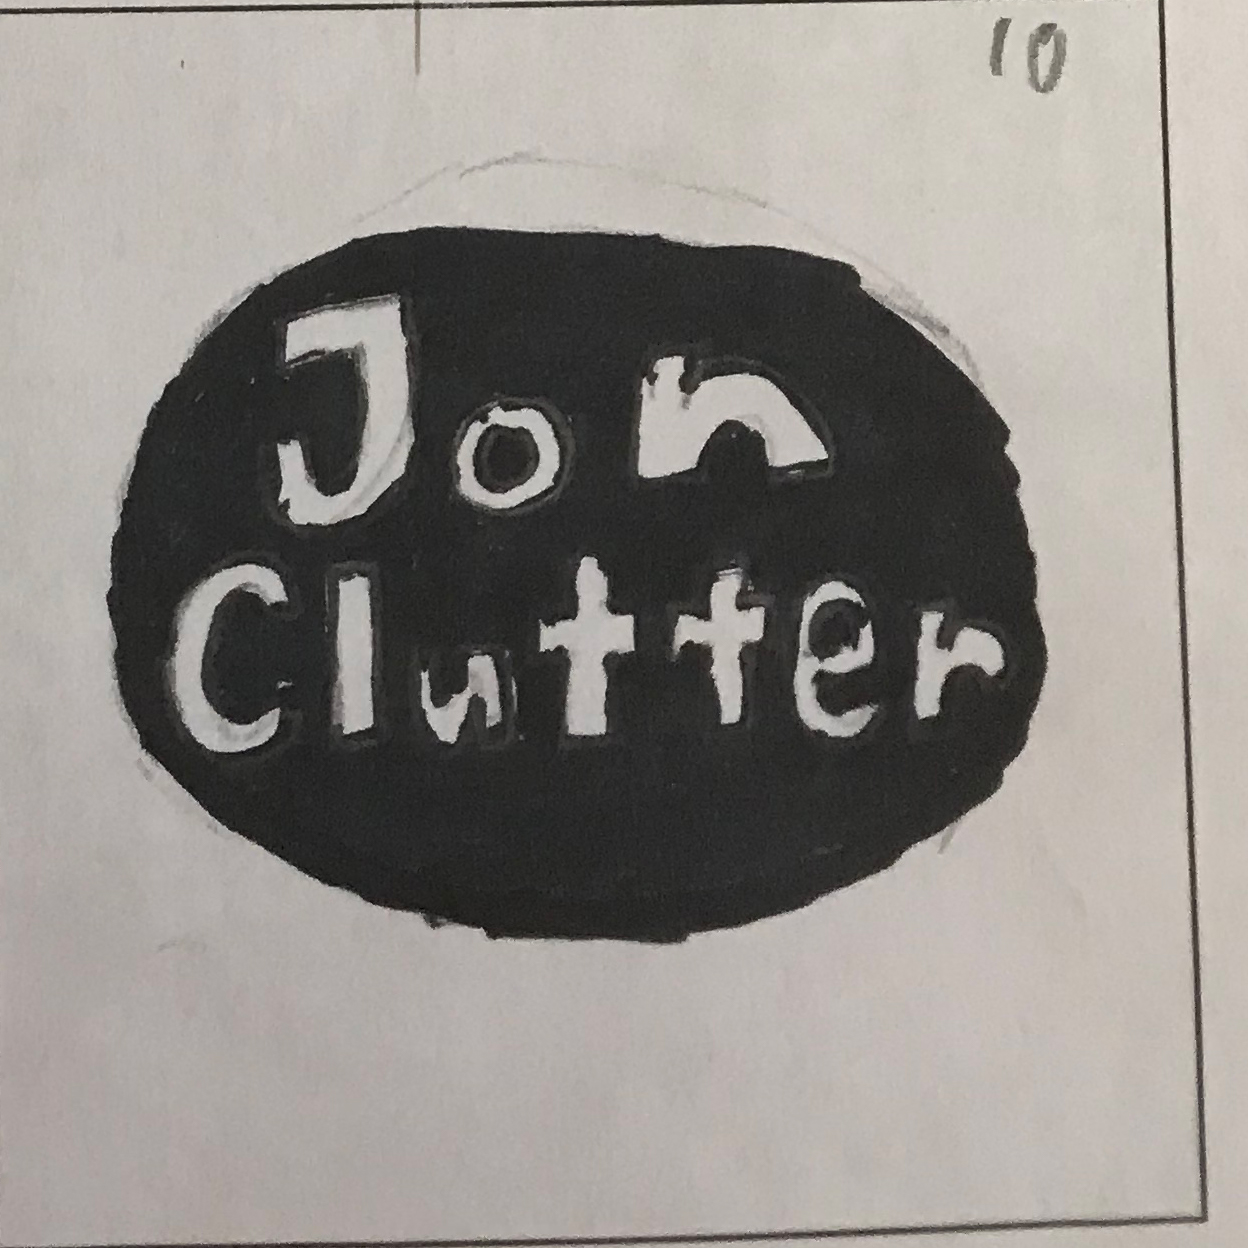 10
Jon
Clutter